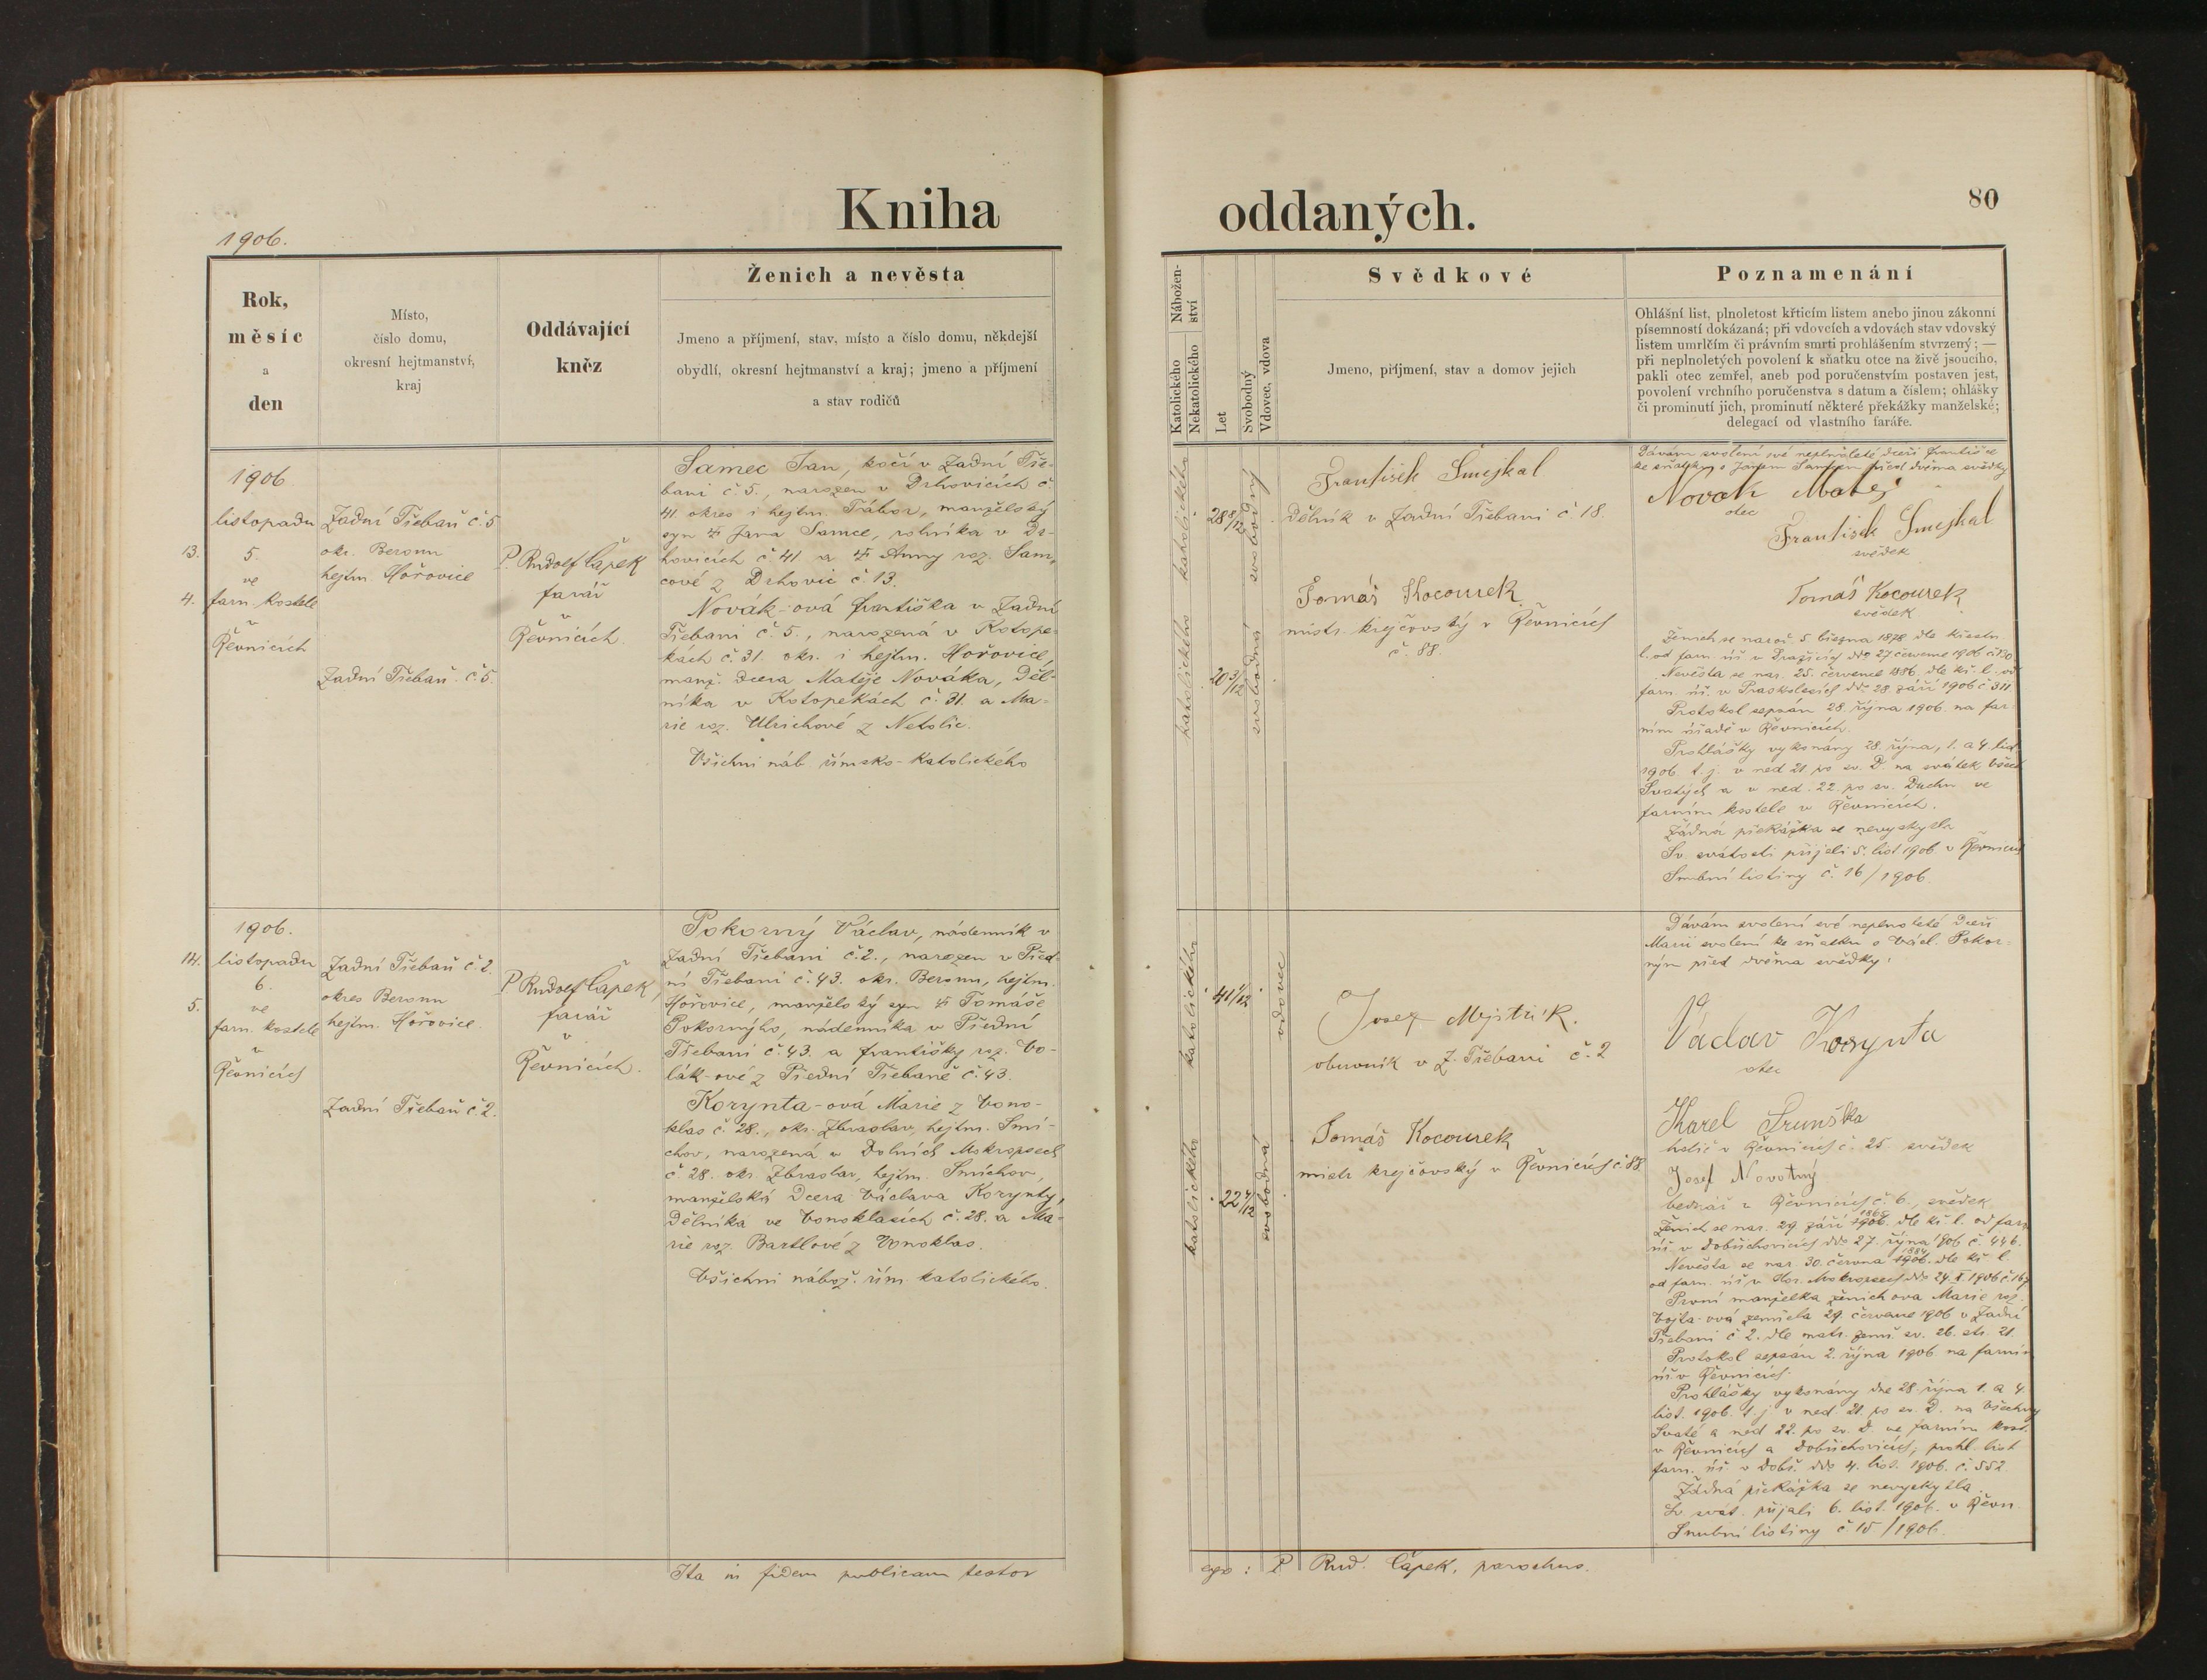 Kniha
oddaných.
80
1906.
Rok,
měsíc
a
den
Místo,
číslo domu,
okresní hejtmanství,
kraj
Oddávající
kněz
Ženich a nevěsta
Jmeno a příjmení, stav, místo a číslo domu, někdejší
obydlí, okresní hejtmanství a kraj; jmeno a příjmení
a stav rodičů
Nábožen-
ství
Katolického
Nekatolického
Let
Svobodný
Vdovec, vdova
Svědkové
Jmeno, příjmení, stav a domov jejich
Poznamenání
Ohlášní list, plnoletost křticím listem anebo jinou zákonní
písemností dokázaná; při vdovcích a vdovách stav vdovský
listem umrlčím či právním smrti prohlášením stvrzený; —
při neplnoletých povolení k sňatku otce na živě jsoucího,
pakli otec zemřel, aneb pod poručenstvím postaven jest,
povolení vrchního poručenstva s datum a číslem; ohlášky
či prominutí jich, prominutí některé překážky manželské;
delegací od vlastního faráře.
1906
listopadu
13.
5.
ve
4.
farn. kostele
v
Řevnicích
Zadní Třebaň č. 5
okr. Beroun
hejtm. Hořovice
Zadní Třebaň č. 5.
P. Rudolf Čapek
farář
v
Řevnicích.
Samec Jan, kočí v Zadní Tře-
bani č. 5., narozen v Drhovicích č.
41. okres i hejtm. Tábor, manželský
syn Jana Samce, rolníka v Dr-
hovicích č. 41. a Anny roz. Sam-
cové z Drhovic č. 13.
Novák-ová Františka v Zadní
Třebani č. 5., narozená v Kotope-
kách č. 31. okr. i hejtm. Hořovice,
manž. dcera Matěje Nováka, děl-
níka v Kotopekách č. 31. a Ma-
rie roz. Ulrichové z Netolic.
Všichni náb. římsko-katolického
katolického
katolického
28 8/12
20 3/12
svobodný
svobodná
František Smejkal
dělník v Zadní Třebani č. 18.
Tomáš Kocourek
mistr krejčovský v Řevnicích
č. 88.
Dávám svolení své neplnoleté dceři Františce
ke sňatku s Janem Samcem před dvěma svědky
Novák Matěj
otec
František Smejkal
svědek
Tomáš Kocourek
svědek
Ženich se naroz. 5. března 1878 dle křestn.
l. od farn. úř. v Dražicích ddo 27. července 1906 č. 130.
Nevěsta se nar. 25. července 1886. dle kř. l. od
farn. úř. v Praskolesích dd. 28. září 1906 č. 311.
Protokol sepsán 28. října 1906. na far-
ním úřadě v Řevnicích.
Prohlášky vykonány 28. října, 1. a 4. list.
1906. t. j. v ned. 21. po sv. D. na svátek Všech
Svatých a v ned. 22. po sv. Duchu ve
farním kostele v Řevnicích.
Žádná překážka se nevyskytla
Sv. svátosti přijali 5. list. 1906 v Řevnicích
Snubní listiny č. 16/1906.
1906.
14.
listopadu
6.
5.
ve
farn. kostele
v
Řevnicích
Zadní Třebaň č. 2.
okres Beroun
hejtm. Hořovice.
Zadní Třebaň č. 2.
P. Rudolf Čapek,
farář
v
Řevnicích.
Pokorný Václav, nádenník v
Zadní Třebani č. 2., narozen v Před-
ní Třebani č. 43. okr. Beroun, hejtm.
Hořovice, manželský syn Tomáše
Pokorného, nádenníka v Přední
Třebani č. 43. a Františky roz. Vo-
lák-ové z Přední Třebaně č. 43.
Korynta-ová Marie z Vono-
klas č. 28., okr. Zbraslav, hejtm. Smí-
chov, narozená v Dolních Mokropsech
č. 28. okr. Zbraslav, hejtm. Smíchov,
manželská dcera Václava Korynty,
dělníka ve Vonoklasích č. 28. a Ma-
rie roz. Bartlové z Vonoklas.
Všichni nábož. řím. katolického.
katolického
katolického
41 1/12
22 4/12
vdovec
svobodná
Josef Mejstřík.
obuvník v Z. Třebani č. 2
Tomáš Kocourek
mistr krejčovský v Řevnicích č. 88.
Dávám svolení své neplnoleté dceři
Marii svolení ke sňatku s Václ. Pokor-
ným před dvěma svědky.
Václav Korynta
otec
Karel Prunška
v Řevnicích č. 25. svědek
Josef Novotný
bednář v Řevnicích č. 6, svědek
Ženich se nar. 29. září 1865 1906. dle kř. l. od farn.
úř. v Dobřichovicích ddo 27. října 1906 č. 446.
Nevěsta se nar. 30. června 1884 1906. dle kř. l.
od farn. úř. v Hor. Mokropsech ddo 24. X. 1906 č. 167
První manželka ženichova Marie roz.
Vojta-ová zemřela 29. července 1906 v Zadní
Třebani č. 2. dle matr. zemř. sv. str. 21.
Protokol sepsán 2. října 1906 na farním
úř. v Řevnicích.
Prohlášky vykonány dne 28. října 1. a 4.
list. 1906. t. j. v ned. 21. po sv. D. na Všechny
Svaté a ned. 22. po sv. D. ve farním kost.
v Řevnicích a Dobřichovicích, prohl. list
farn. úř. v Dobř. ddo 4. list. 1906. č. 552.
Žádná překážka se nevyskytla.
Sv. svát. přijali 6. list. 1906. v Řevn.
Snubní listiny č. 15/1906.
Ita in fidem publicam testor
ego: P. Rud. Čapek, parochus.